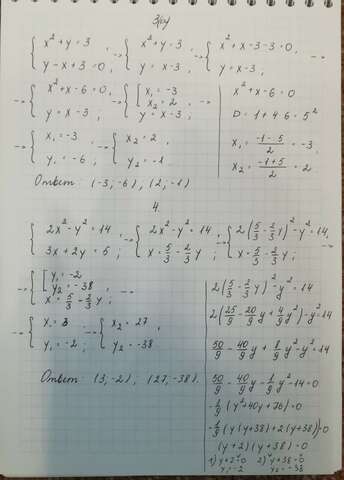 3(б)
{ x² + y = 3, y - x + 3 = 0; → { x² + y = 3, y = x - 3; → { x² + x - 3 - 3 = 0, y = x - 3; →
→ { x² + x - 6 = 0, y = x - 3; → { [ x₁ = -3 x₂ = 2, y = x - 3;
x² + x - 6 = 0
D = 1 + 4·6 = 5²
x₁ = (-1-5)/2 = -3,
x₂ = (-1+5)/2 = 2.
{ x₁ = -3, y₁ = -6; → { x₂ = 2, y₂ = -1.
Ответ: (-3, -6), (2, -1)
4.
{ 2x² - y² = 14, 3x + 2y = 5; → { 2x² - y² = 14, x = 5/3 - 2/3 y; → { 2(5/3 - 2/3 y)² - y² = 14, x = 5/3 - 2/3 y; →
→ { [ y₁ = -2 y₂ = -38 x = 5/3 - 2/3 y;
→ { x₁ = 3, y₁ = -2; → { x₂ = 27, y₂ = -38.
Ответ: (3, -2), (27, -38).
2(5/3 - 2/3 y)² - y² = 14
2(25/9 - 20/9 y + 4/9 y²) - y² = 14
50/9 - 40/9 y + 8/9 y² - y² = 14
50/9 - 40/9 y - 1/9 y² - 14 = 0
-1/9 (y² + 40y + 76) = 0
-1/9 (y(y+38) + 2(y+38)) = 0
(y+2)(y+38) = 0
1) y+2=0 2) y+38=0
y₁ = -2 y₂ = -38